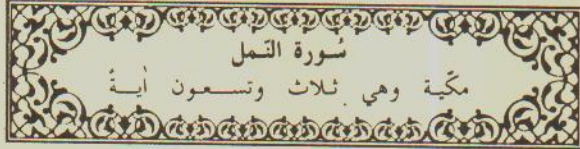 سُورة النّمل
مكّية وهي ثلاث وتسعون أيةً